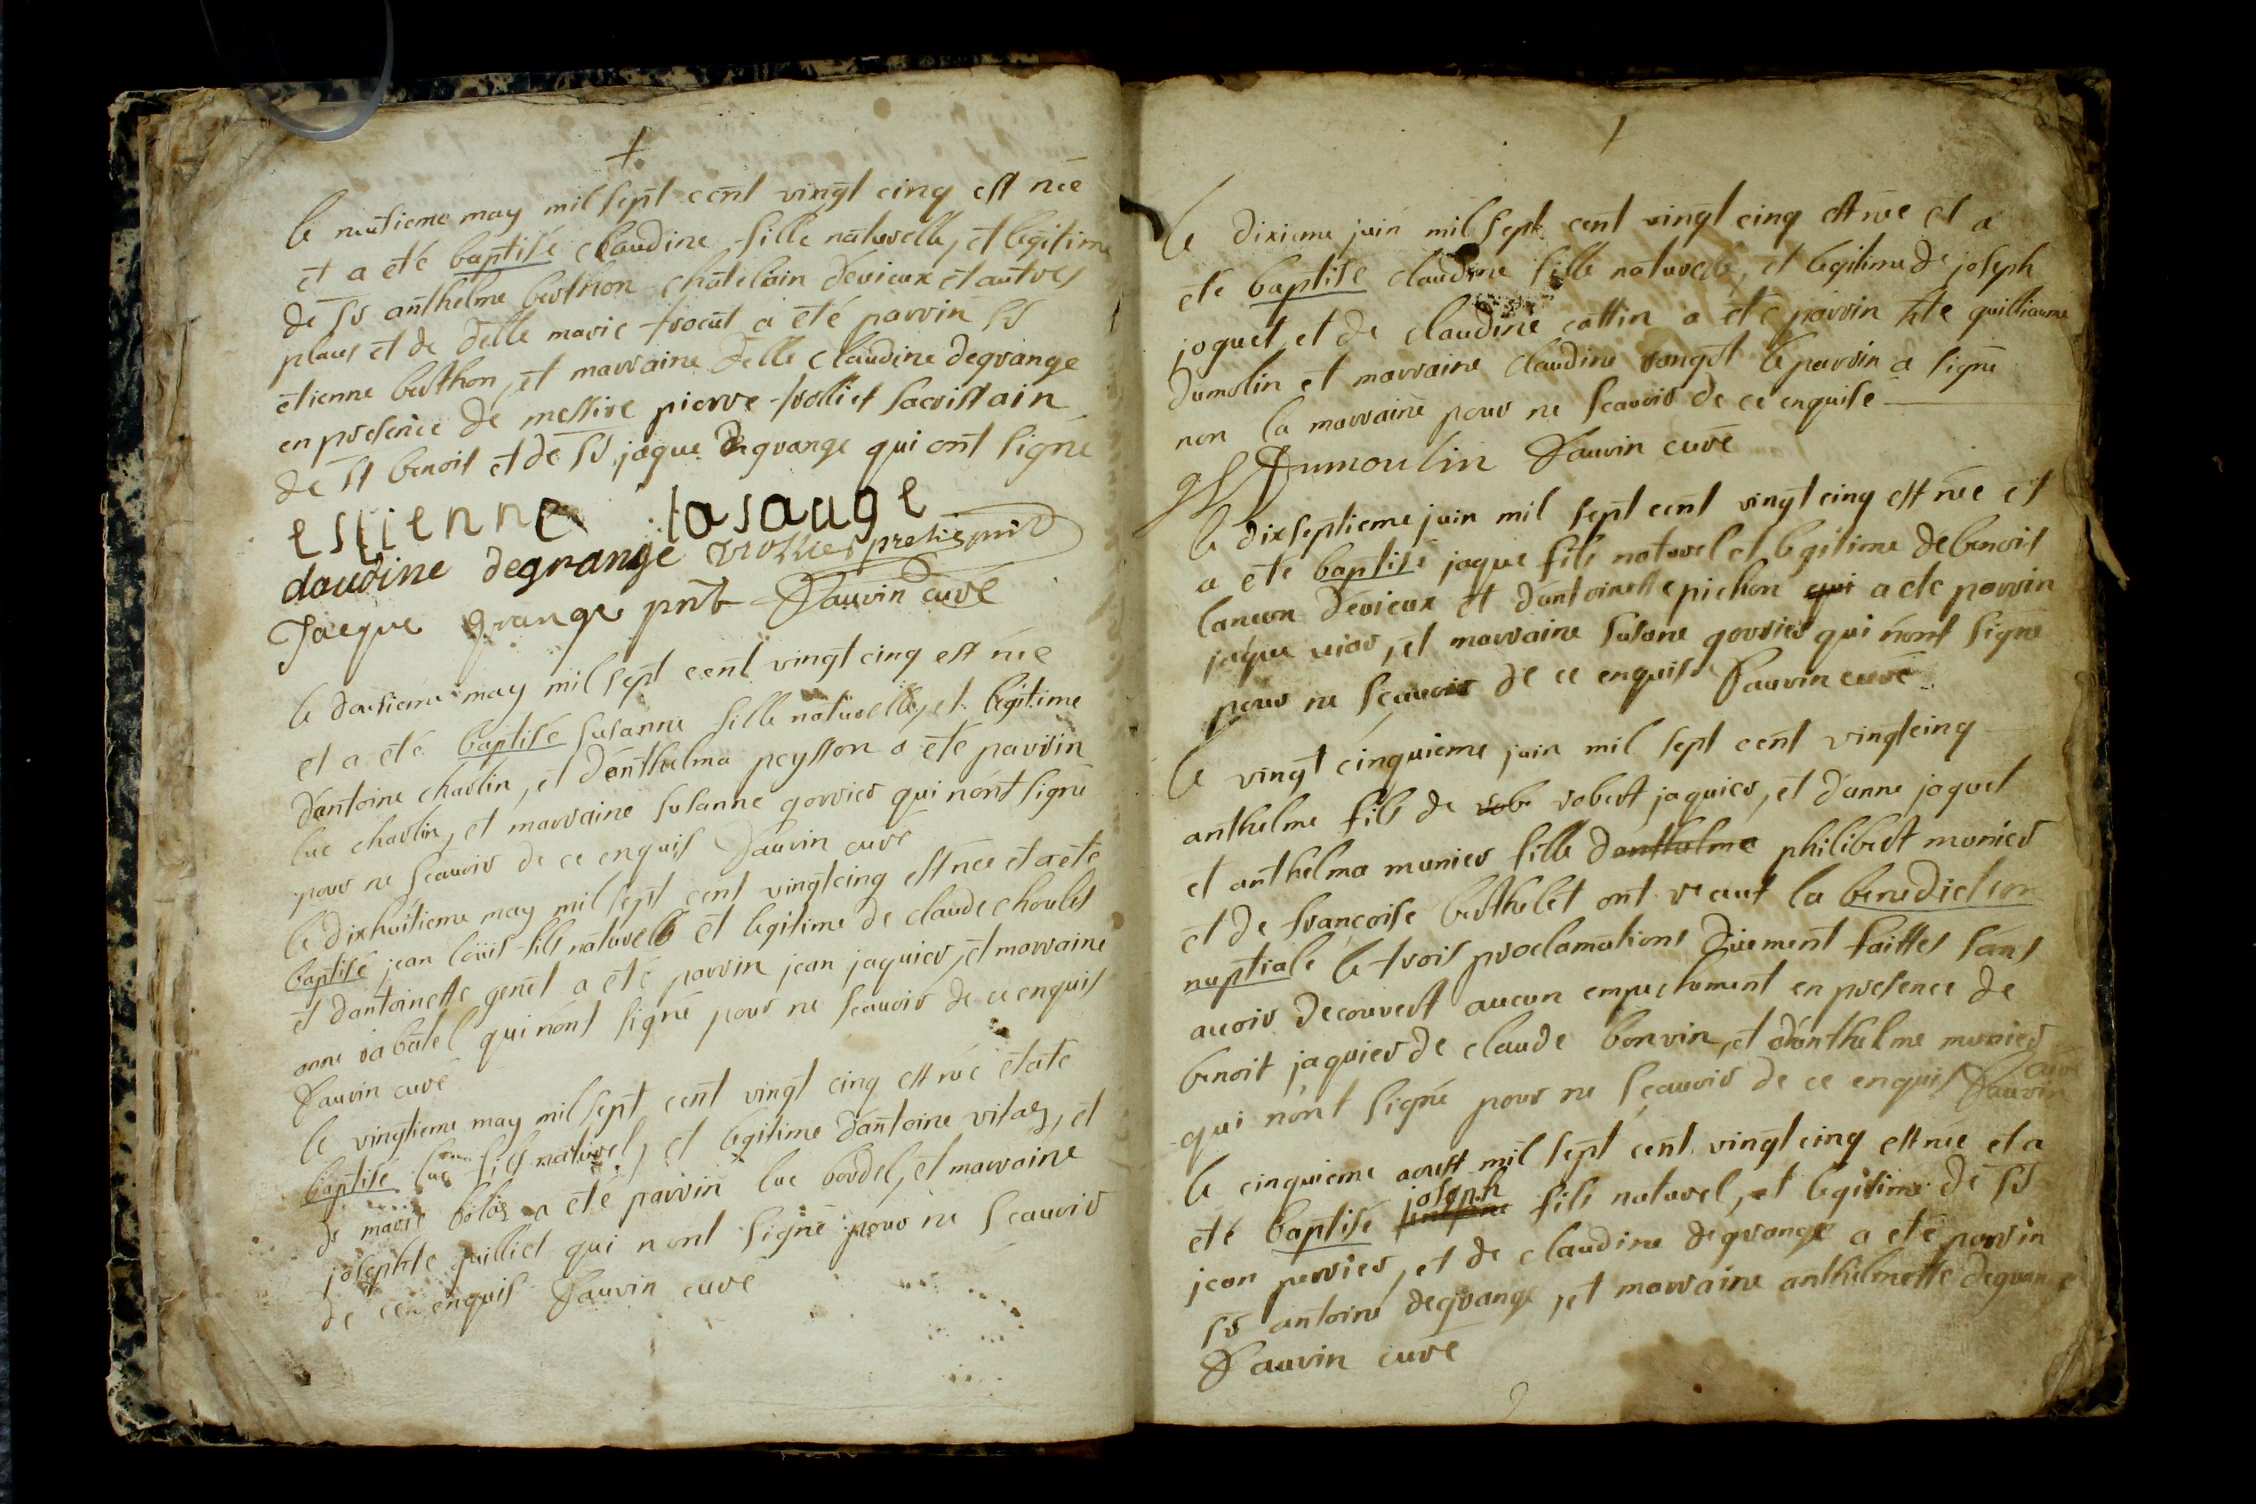 le neufieme may mil sept cent vingt cinq est neé
et a eté baptisé claudine fille naturelle, et legitime
de sr anthelme berthon chatelain d'evieux et autres
places et de delle marie trocut a eté parrin sr
etienne berthon, et marraine delle claudine degrange
en presence de messire pierre trolliet sacristain
de st benoit et de sr jaque degrange qui ont signé
estienne lasauge
claudine degrange
Jacque grange pnt Fauvin curé
le douzieme may mil sept cent vingt cinq est neé
et a eté baptisé susanne fille naturelle, et legitime
d'antoine charlin, et d'anthelma peysson a eté parrin
luc charlin, et marraine susanne gorrier qui n'ont signé
pour ne scauoir de ce enquis Fauvin curé
le dixhuitieme may mil sept cent vingt cinq est neé et a eté
baptisé jean loüis fils naturel et legitime de claude choulet
et d'antoinette genet a eté parrin jean jaquier, et marraine
anne rabatel qui n'ont signé pour ne scauoir de ce enquis
Fauvin curé
le vingtieme may mil sept cent vingt cinq est neé et a eté
baptisé luc fils naturel, et legitime d'antoine vitaz, et
de marie bolaz a eté parrin luc bordel, et marraine
josephte guilliet qui n'ont signé pour ne scauoir
de ce enquis Fauvin curé
le dixieme juin mil sept cent vingt cinq est neé et a
eté baptisé claudine fille naturelle, et legitime de joseph
joguet, et de claudine cottin a eté parrin guilliaume
dumolin et marraine claudine rangot le parrin a signé
non la marraine pour ne scauoir de ce enquise
Dumoulin Fauvin curé
le dixseptieme juin mil sept cent vingt cinq est neé et
a eté baptisé jaque fils naturel et legitime de benoit
lancon d'evieux et d'antoinette pichon qui a eté parrin
jaque uior, et marraine susane gorrier qui n'ont signé
pour ne scauoir de ce enquis Fauvin curé
le vingt cinquieme juin mil sept cent vingt cinq
anthelme fils de rob robert jaquier, et d'anne jaquet
et anthelma munier fille d'anthelme philibert munier
et de françoise berthelet ont receut la benediction
nuptiale le trois proclamations düement faittes sans
auoir decouvert aucun empechement en presence de
benoit jaquier de claude bonvin, et d'anthelme munier
qui n'ont signé pour ne scauoir de ce enquis Fauvin curé
le cinquieme aoust mil sept cent vingt cinq est neé et a
eté baptisé joseph fils naturel, et legitime de sr
jean perrier, et de claudine degrange a eté parrin
sr antoine degrange, et marraine anthelmette degrange
Fauvin curé